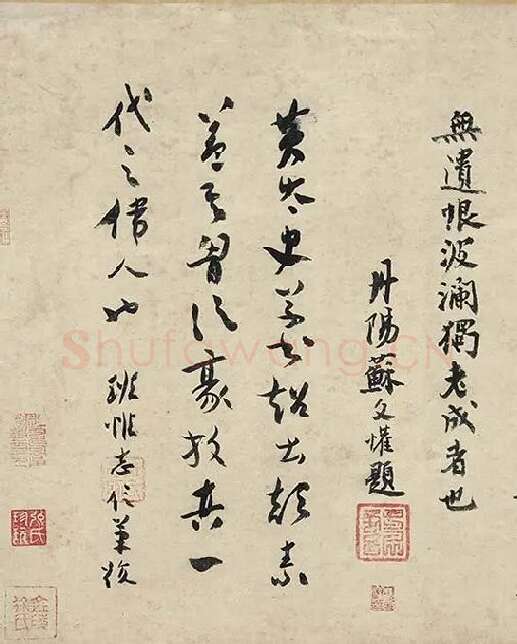 無遺恨波瀾獨老成者也
丹陽蘇文懽題
黃太史草書超出顛素
蓋其胸次豪放真一
代之偉人也
班惟志信筆跋
Shufawang.CN